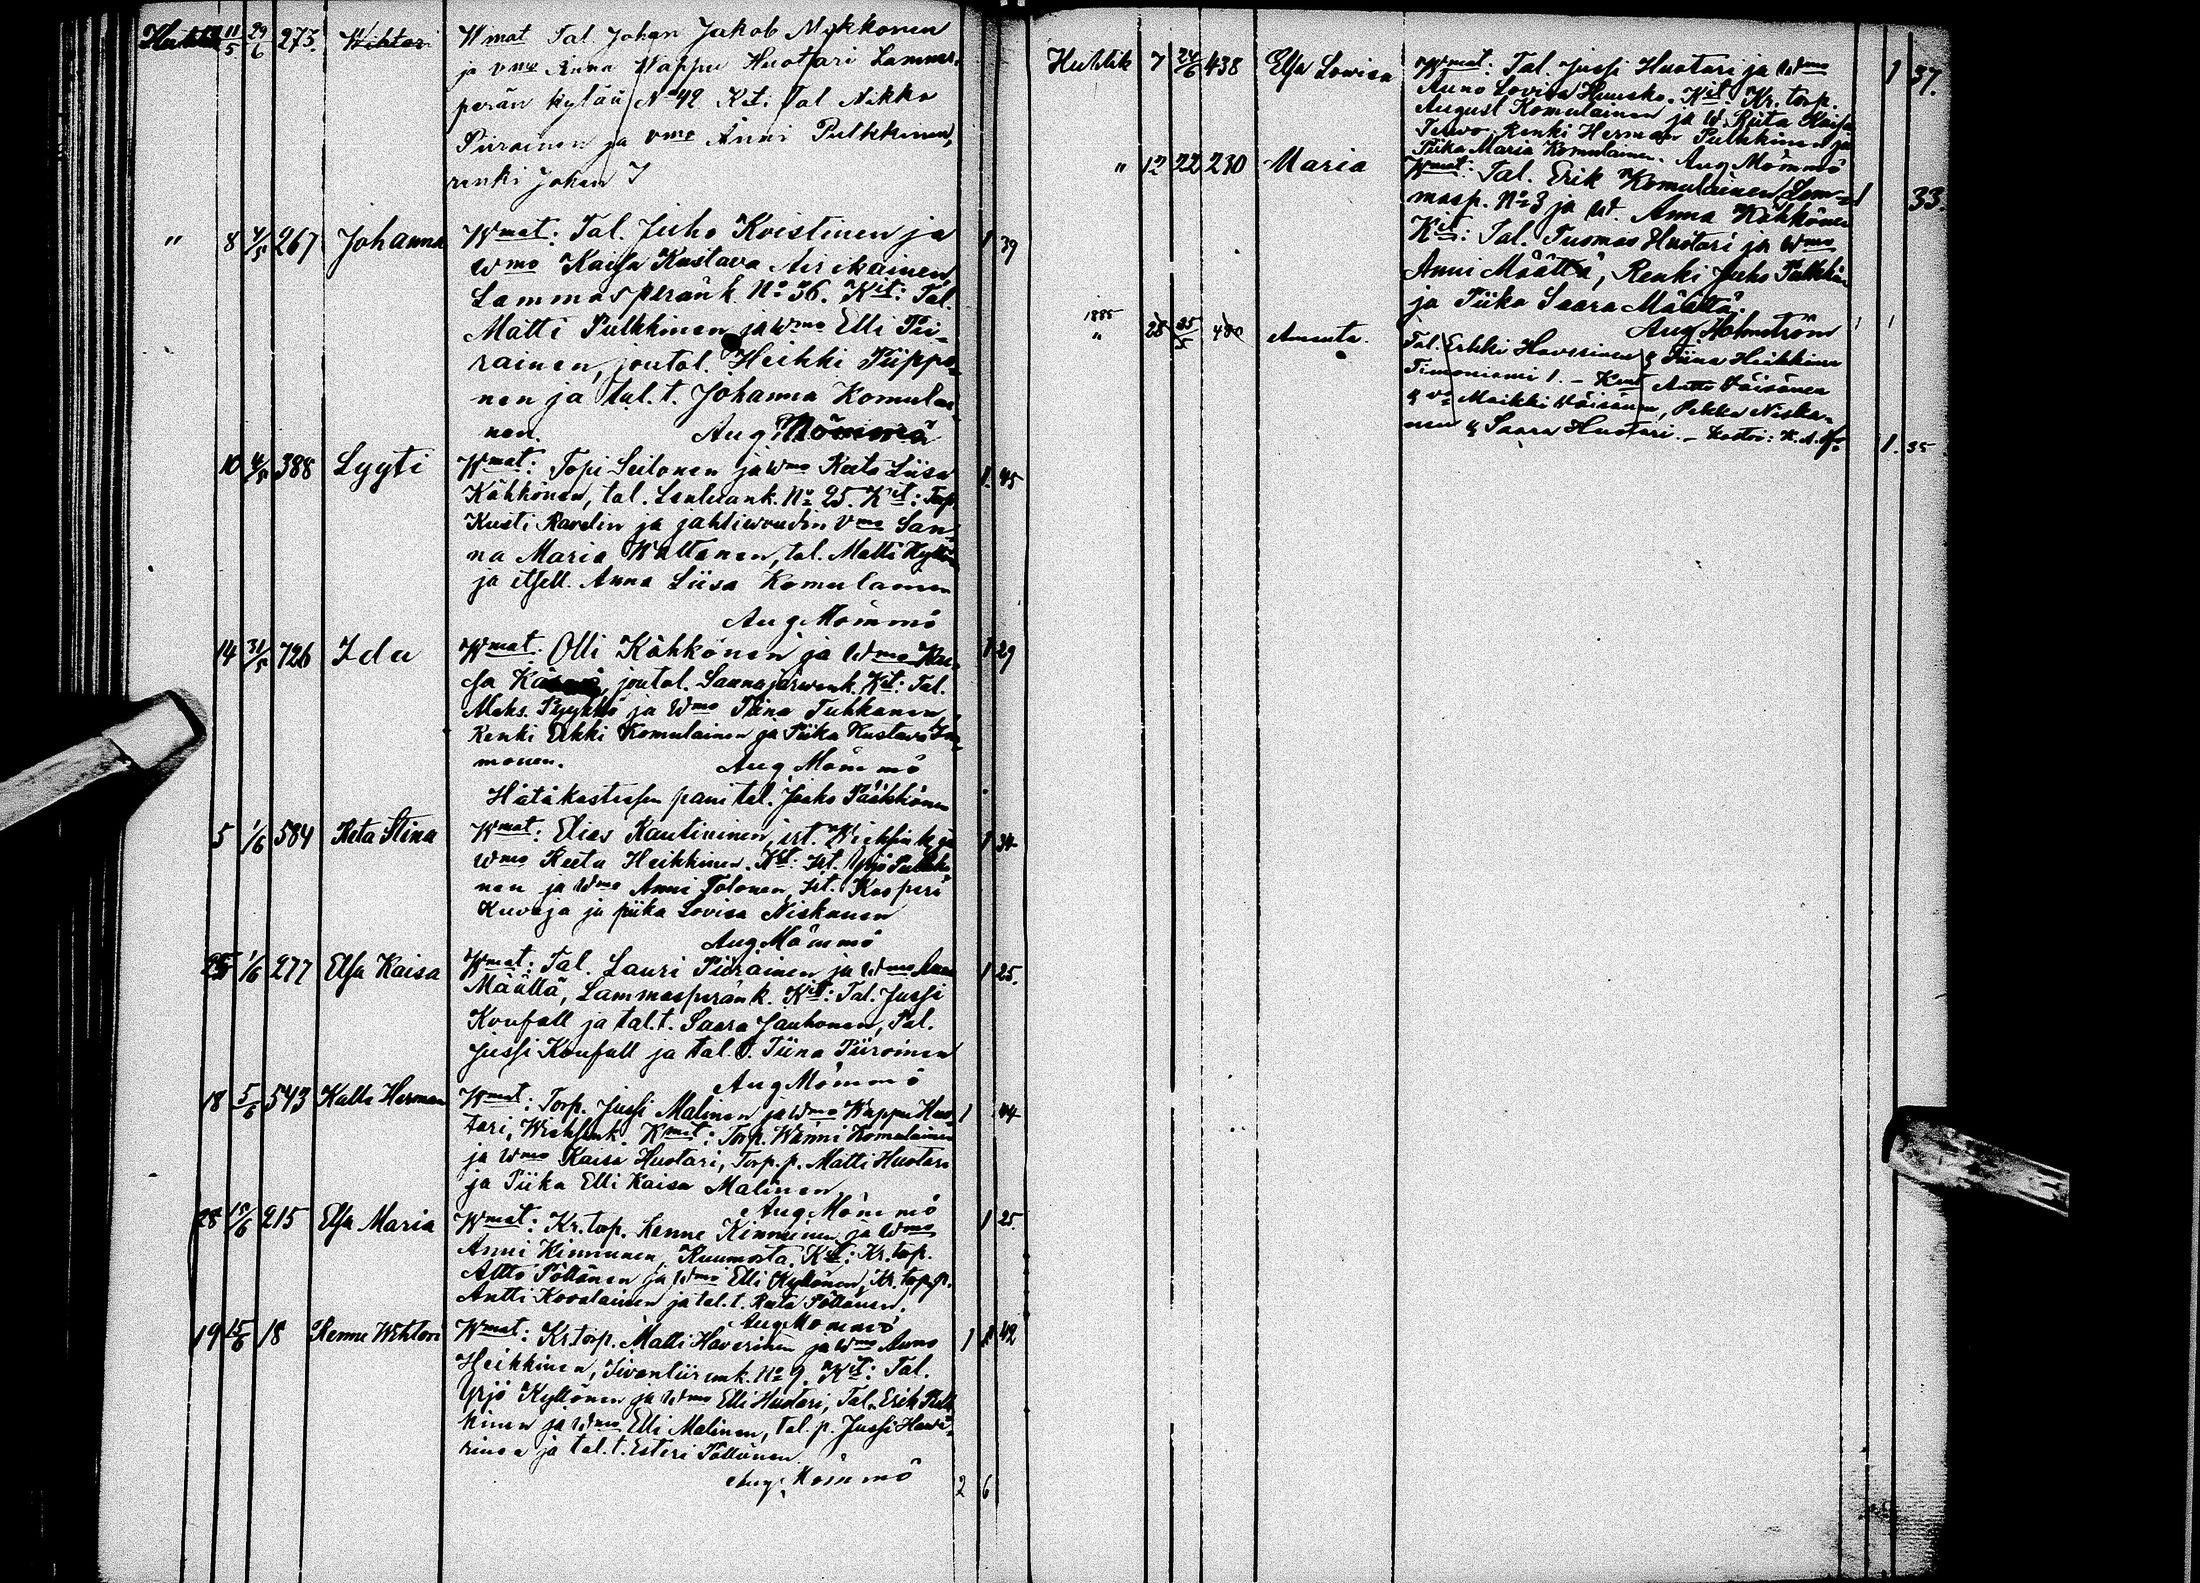 Huhtik 11/5 29/6 273. Wihtori Wmat Tal Johan Jakob Mykkönen
ja vmo Anna Wappu Huotari Lammas-
perän kylää No 42 Kit. Tal Mikko
Piirainen ja vmo Anni Pulkkinen,
renki Johan I
" 8 4/5 267 Johanna Wmat: Tal. Juho Kvistinen ja 1 39
wmo Kaisa Kustava Airikainen
Lammasperänk. No 36. Kit: Tal.
Matti Pulkkinen ja wmo Elli Pii-
rainen, joutol. Heikki Piippo-
nen ja tal.t. Johanna Komulai-
nen. Aug. Mömmö
10 4/5 388 Lyyti Wmat: Topi Seilonen ja wmo Reeta Liisa 1. 45
Kähkönen, tal. No 25. Kit: Torp.
Kusti Ravelin ja jahtiwoudin Vmo San-
na Maria Wattanen, tal. Matti Kyllön
ja itsell. Anna Liisa Komulainen
Aug. Mömmö
14 31/5 726 Ida Wmat. Olli Kähkönen ja Wmo Kai- 1 29
sa joutol. Saunajärwenk. Kit: Tal.
Aleks. Pyykkö ja Wmo Tiina Tuhkanen
Renki Erkki Komulainen ja Piika Kustava Im-
monen. Aug. Mömmö
Hätäkasteessen pani tal. Jaako Pääkkönen
5 1/6 584 Reta Stina Wmat: Elias Rautiainen, irt. ja 1 34
wmo Reeta Heikkinen. Kit: Irt. Yrjö Pulkki-
nen ja Wmo Anni Tolonen, irt. Kasperi
Kuvaja ja piika Lovisa Niskanen
Aug. Mömmö
25 1/6 277 Elsa Kaisa Wmat: Tal. Lauri Piirainen ja Wmo Anna 1 25.
Määttä, Lammasperänk. Kit: Tal. Jussi
Konfall ja tal.t. Saara Jauhonen, Tal.
Jussi Konfall ja tal.t. Tiina Piirainen
Aug. Mömmö
18 5/6 543 Kalle Herman Wmat: Torp. Jussi Malinen ja Wmo Wappu Huo- 1 44
tari, Kmit: Torp. Wänni Komulainen
ja Wmo Kaisa Huotari, Torp. p. Matti Huotari
ja Piika Elli Kaisa Malinen
Aug. Mömmö
28 15/6 215 Elsa Maria Wmat: Kr. torp. Lenne Kinnunen ja Wmo 1 25.
Anni Kinnunen, Kuumosta. Kit: Kr. torp.
Atto Pöllänen ja Wmo Elli Kyllönen, Kr. torp. p.
Antti Kovalainen ja tal.t. Reeta Pöllänen.
Aug. Mömmö
19 15/6 18 Renne Wihtori Wmat: Kr torp. Matti Haverinen ja Wmo Anna 1 1 42
Heikkinen, No 9. Kit: Tal.
Yrjö Kyllönen ja Wmo Elli Huotari, Tal. Erik Pulk
kinen ja Wmo Elli Malinen, tal. p. Jussi Have-
rinen ja tal.t. Esteri Pöllänen
Aug. Mömmö 2 6
Huhtik 7 24/6 438 Elsa Lowisa Wmat: Tal. Jussi Huotari ja Wmo 1 37.
Anna Lovisa Huusko. Kit: Kr. torp.
August Komulainen ja W. Riita Kaisa
Terwo, Renki Herman Pulkkinen ja
Piika Maria Komulainen. Aug. Mömmö
" 12 22 230 Maria Wmat: Tal. Erik Komulainen Lam- 1 33.
masp. No 3 ja W. Anna Kähkönen
Kit: Tal. Tuomas Huotari ja Wmo
Anni Määttä, Renki Juho Pulkkin
ja Piika Saara Määttä.
Aug. Holmström
1885
" 28 25/5 480 Amanta. Tal. Erkki Haverinen & Tiina Heikkinen 1 1
Timoniemi 1. – Antti Väisänen
& va Maikki Väisänen, Pekka Niska-
nen & Saara Huotari. – Kastoi: 1. 35